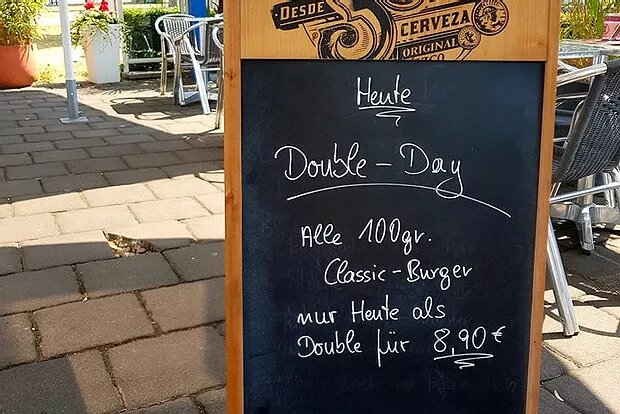 DESDE
CERVEZA
ORIGINAL
Heute
Double-Day
Alle 100gr.
Classic-Burger
nur Heute als
Double für 8,90€